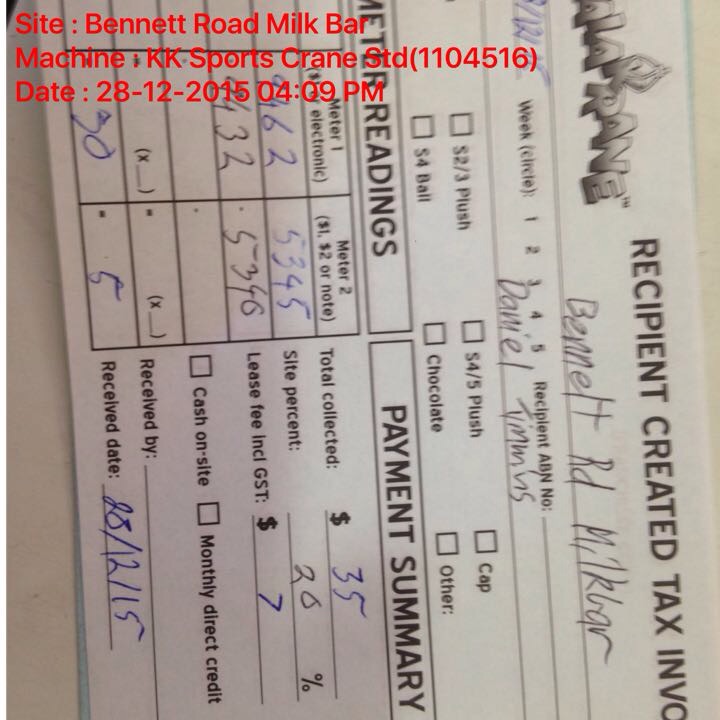 Site : Bennett Road Milk Bar
Machine : KK Sports Crane Std(1104516)
Date : 28-12-2015 04:09 PM
RECIPIENT CREATED TAX INVO
Bennett Rd Milkbar
Week (circle): 1 2 3 4 5 Recipient ABN No:
Daniel Timmins
S2/3 Plush S4/5 Plush Cap
S4 Ball Chocolate Other:
METER READINGS
Meter 1 Meter 2
electronic) ($1, $2 or note)
9462 5345
9432 5340
(x __) = (x __)
30 = 5
PAYMENT SUMMARY
Total collected: $ 35
Site percent: 20 %
Lease fee incl GST: $ 7
Cash on-site Monthly direct credit
Received by:
Received date: 28/12/15